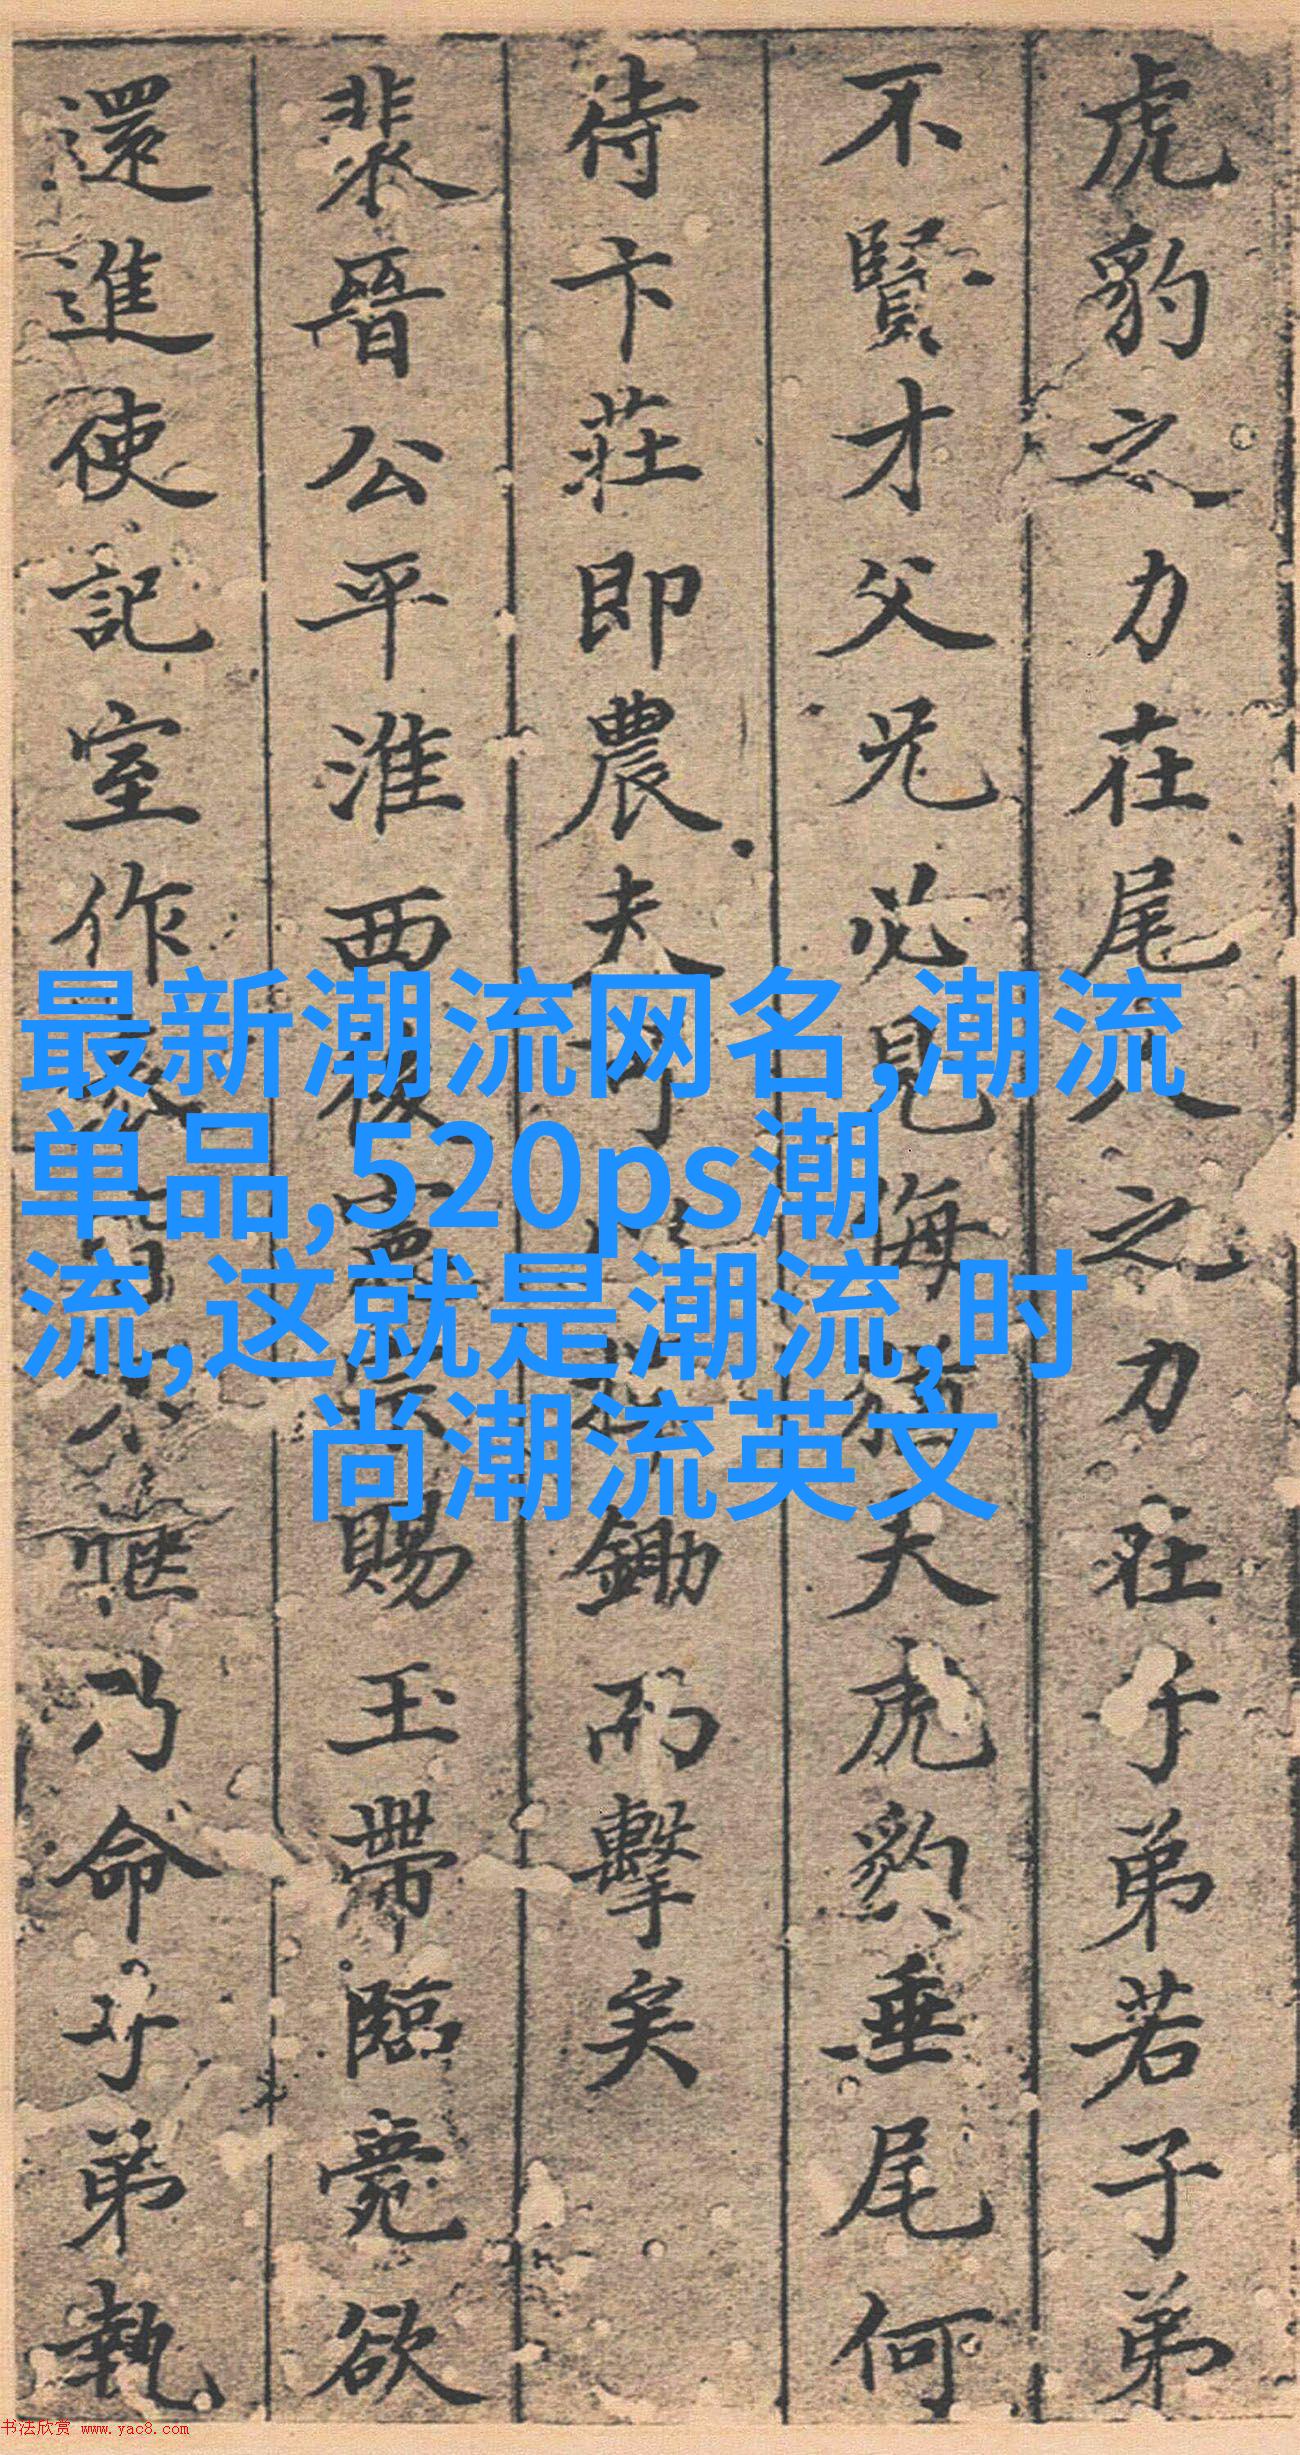 虎豹之力在尾人之力在子弟若子弟
不賢才父兄必見侮夫虎豹垂尾何
待卞莊即農夫可鋤而擊矣
裴晉公平淮西後憲宗賜玉帶臨薨欲
還進使記室作表皆不愜乃命子弟執
最新潮流网名,潮流
单品,520ps潮
流,这就是潮流,时
尚潮流英文
书法欣赏 www.yac8.com